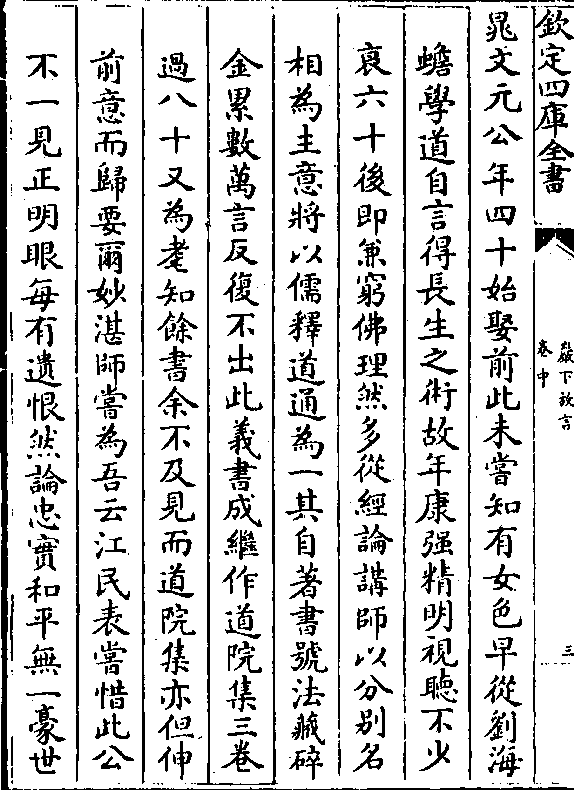 欽定四庫全書
巖下放言
卷中
三
晁文元公年四十始娶前此未嘗知有女色早從劉海
蟾學道自言得長生之術故年康强精明視聽不少
衰六十後即兼窮佛理然多從經論講師以分别名
相為主意將以儒釋道通為一其自著書號法藏碎
金累數萬言反復不出此義書成繼作道院集三卷
過八十又為耄知餘書余不及見而道院集亦但伸
前意而歸要爾妙湛師嘗為吾云江民表嘗惜此公
不一見正明眼每有遺恨然論忠實和平無一豪世